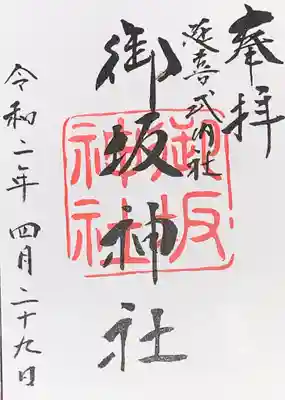 奉拝
延喜式内社
御坂神社
御坂
神社
令和二年 四月二十九日